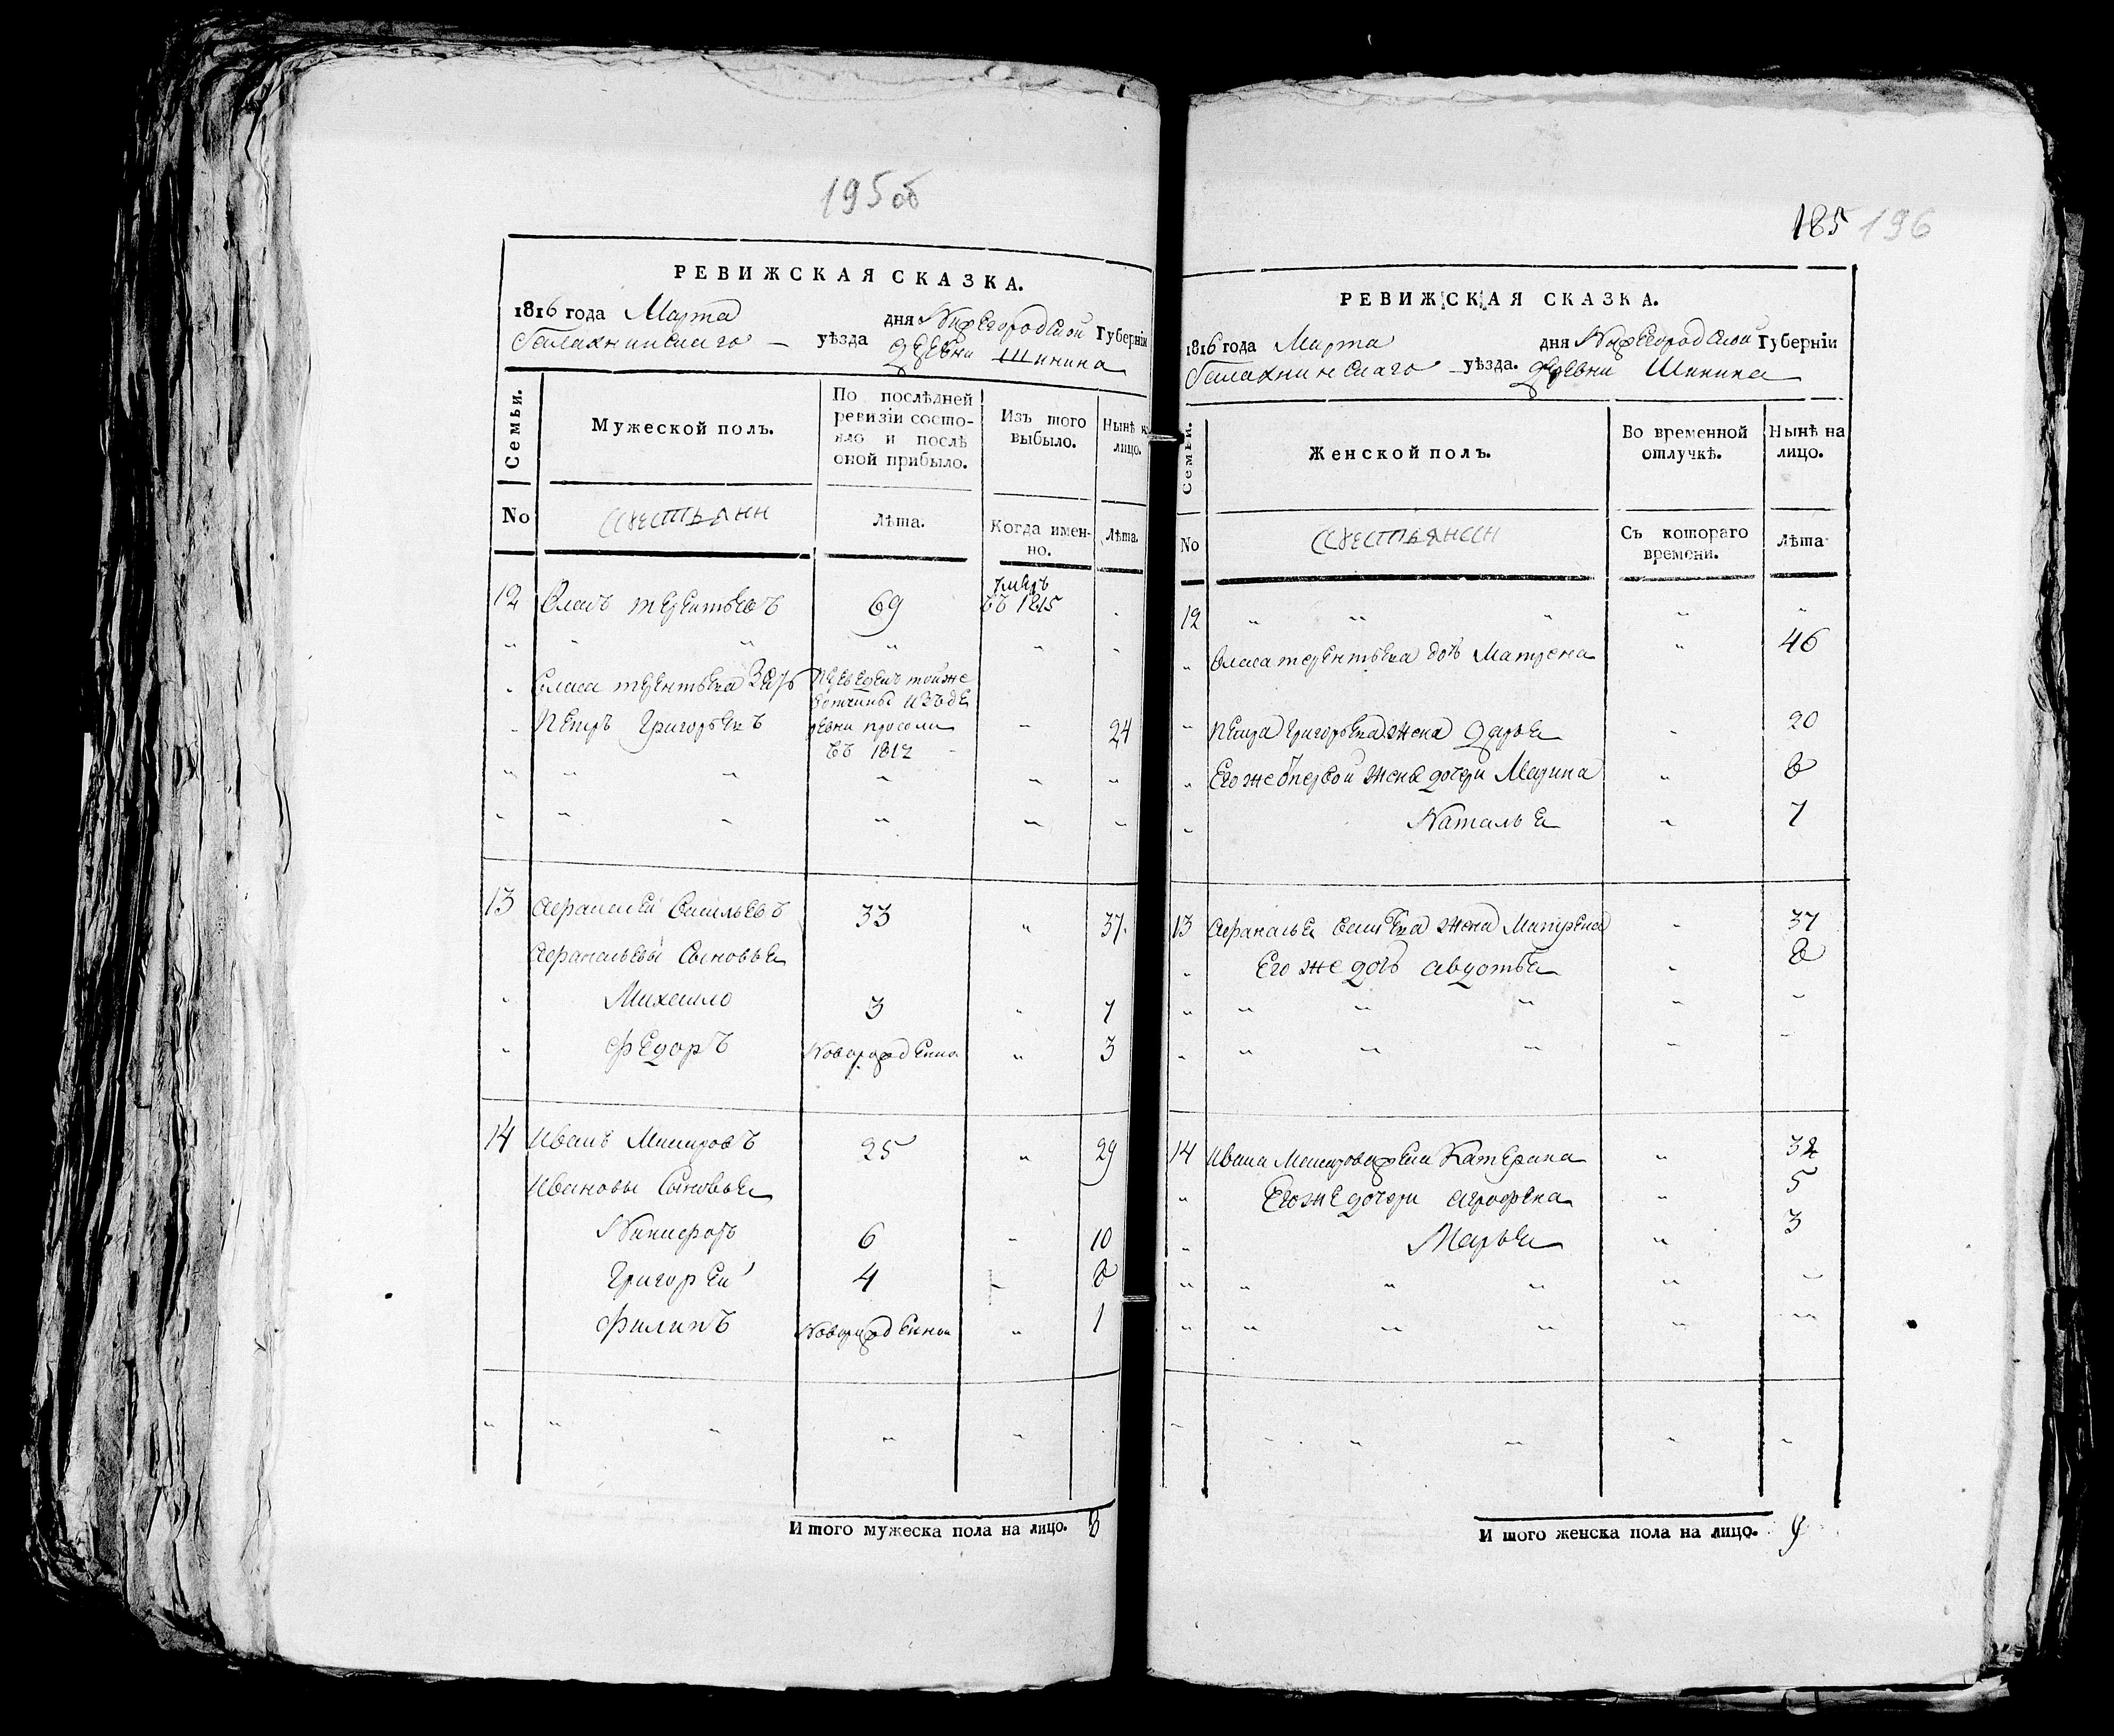 195 об
РЕВИЖСКАЯ СКАЗКА.
1816 года Марта дня Нижегородской Губерніи
Балахнинскаго уѣзда деревни Шинина
Семьи.
Мужеской полъ.
По послѣдней ревизіи состояло и послѣ оной прибыло.
Изъ того выбыло.
Нынѣ на лицо.
No
крестьянн
Лѣта.
Когда именно.
Лѣта.
12 Власъ терентьевъ 69 умеръ въ 1815
Власа терентьева зять переведенъ тойже вотчины изъ де
Петръ Григорьевъ ревни въ 1812 24
13 Афанасей Васильевъ 33 37.
Афанасьевы Сыновья
Михаило 3 7
Федоръ Новорожденной 3
14 Иванъ 25 29
Ивановы Сыновья
Никифоръ 6 10
Григорей 4 8
Филипъ Новорожденной 1
И того мужеска пола на лицо. 8
185 196
РЕВИЖСКАЯ СКАЗКА.
1816 года Марта дня Нижегородской Губерніи
Балахнинскаго уѣзда. деревни Шинина
Семьи.
Женской полъ.
Во временной отлучкѣ.
Нынѣ на лицо.
No
Съ котораго времени.
Лѣта
12
Власа терентьева дочь Матрена 46
Петра григорьева жена Дарья 20
Его же первой жены дочери Марина 8
Наталья 7
13 Афанасья васильева жена Матрена 37
Его же дочь авдотья 8
14 Ивана жена Катерина 32
Его же дочери аграфена 5
Марья 3
И того женска пола на лицо. 9